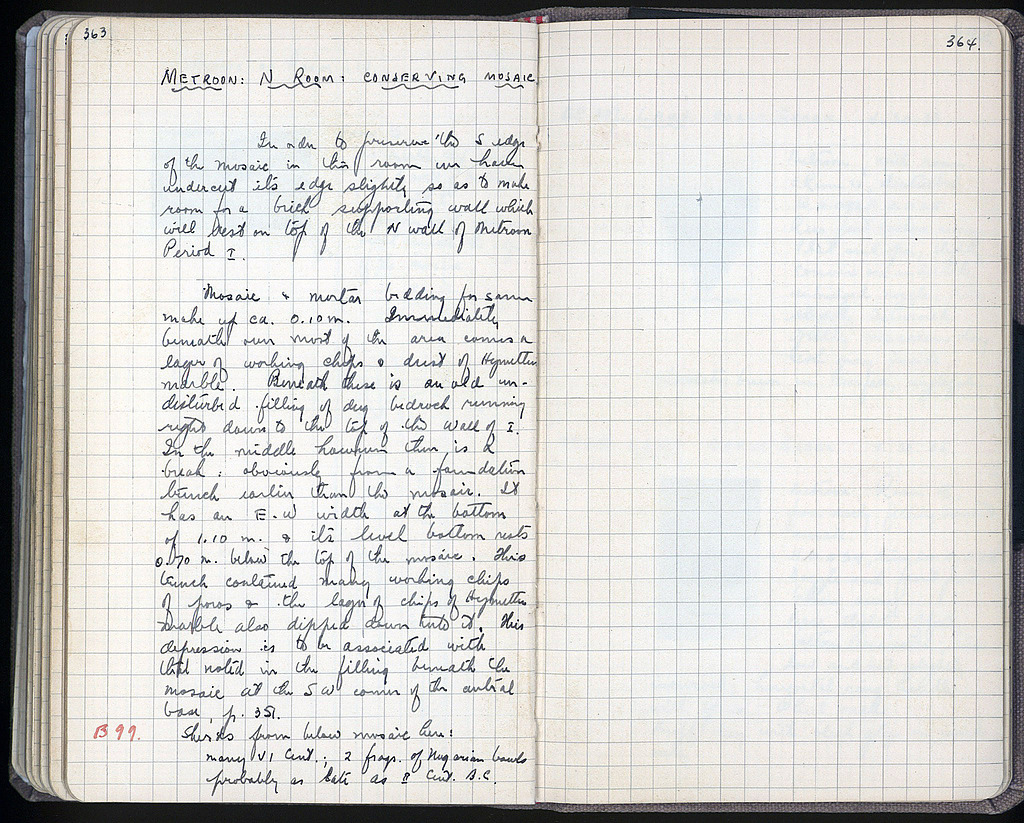 363
364.
METROON: N ROOM: CONSERVING MOSAIC
In order to preserve the S edge
of the mosaic in this room we have
undercut its edge slightly so as to make
room for a brick supporting wall which
will rest on top of the N wall of Metroon
Period I.
Mosaic & mortar bedding for same
make up ca. 0.10 m. Immediately
beneath over most of the area comes a
layer of working chips & dust of Hymettian
marble. Beneath these is an old un-
disturbed filling of dug bedrock running
right down to the top of the wall of I.
In the middle however there is a
break: obviously from a foundation
trench earlier than the mosaic. It
has an E-W width at the bottom
of 1.10 m. & its level bottom rests
0.70 m. below the top of the mosaic. This
trench contained many working chips
of poros & the layer of chips of Hymettian
marble also dipped down into it. This
depression is to be associated with
that noted in the filling beneath the
mosaic at the SW corner of the central
base, p. 351.
B 99. Sherds from below mosaic here:
many VI Cent.; 2 frags. of Megarian bowls
probably as late as II Cent. B.C.